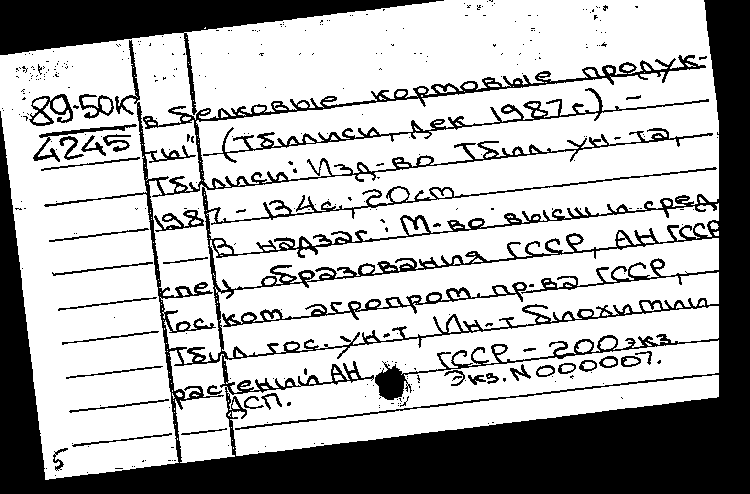 89-50к
4245
в белковые кормовые продук-
ты" (Тбилиси, дек 1987г.). -
Тбилиси: Изд-во Тбил. ун-та,
1987. - 134с.; 20см.
В надзаг.: М-во высш и сред.
спец. образования ГССР, АН ГССР
Гос. ком. агропром. пр-ва ГССР,
Тбил. гос. ун-т, Ин-т биохимии
растений АН ГССР. - 200экз.
ДСП. Экз. N000007.
5